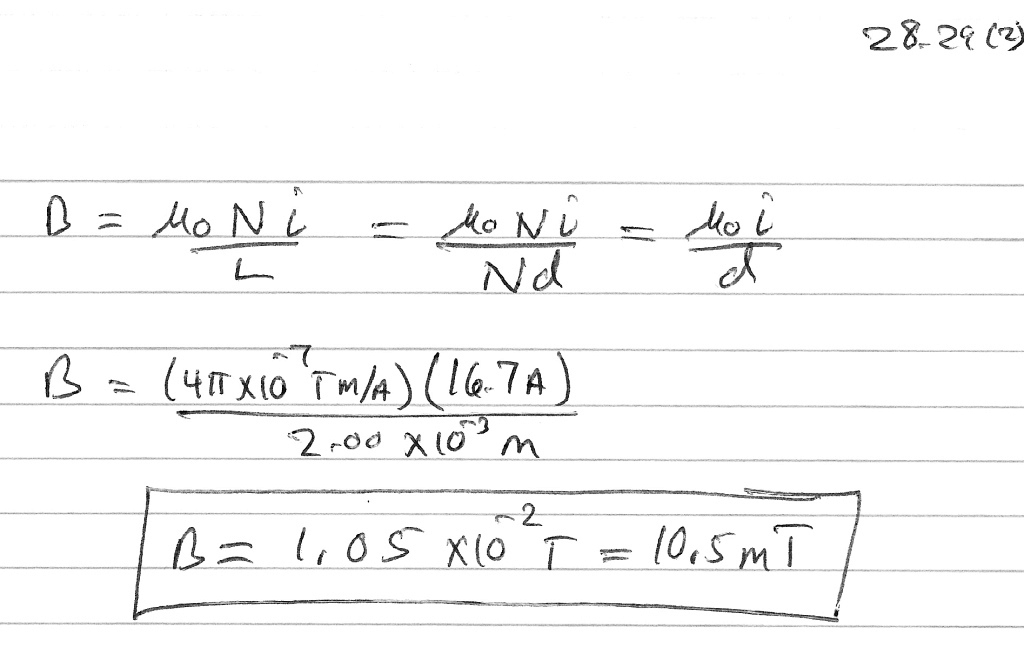 28-29 (2)
B = μ₀ N i / L = μ₀ N i / N d = μ₀ i / d
B = (4π x10⁻⁷ T m/A) (16.7 A) / 2.00 x10⁻³ m
B = 1.05 x10⁻² T = 10.5 mT